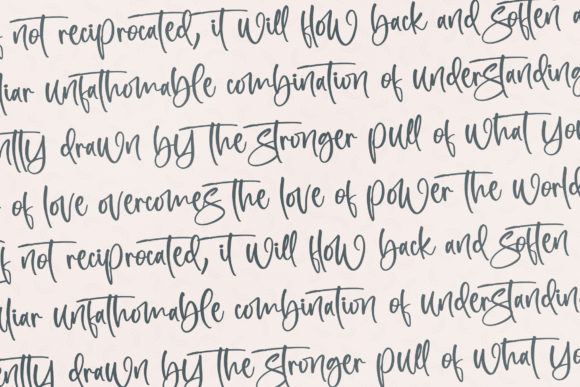 f not reciprocated, it will flow back and soften a
liar unfathomable combination of understanding
ently drawn by the stronger pull of what you
of love overcomes the love of power the world
f not reciprocated, it will flow back and soften
uliar unfathomable combination of understandin
ently drawn by the stronger pull of what yo